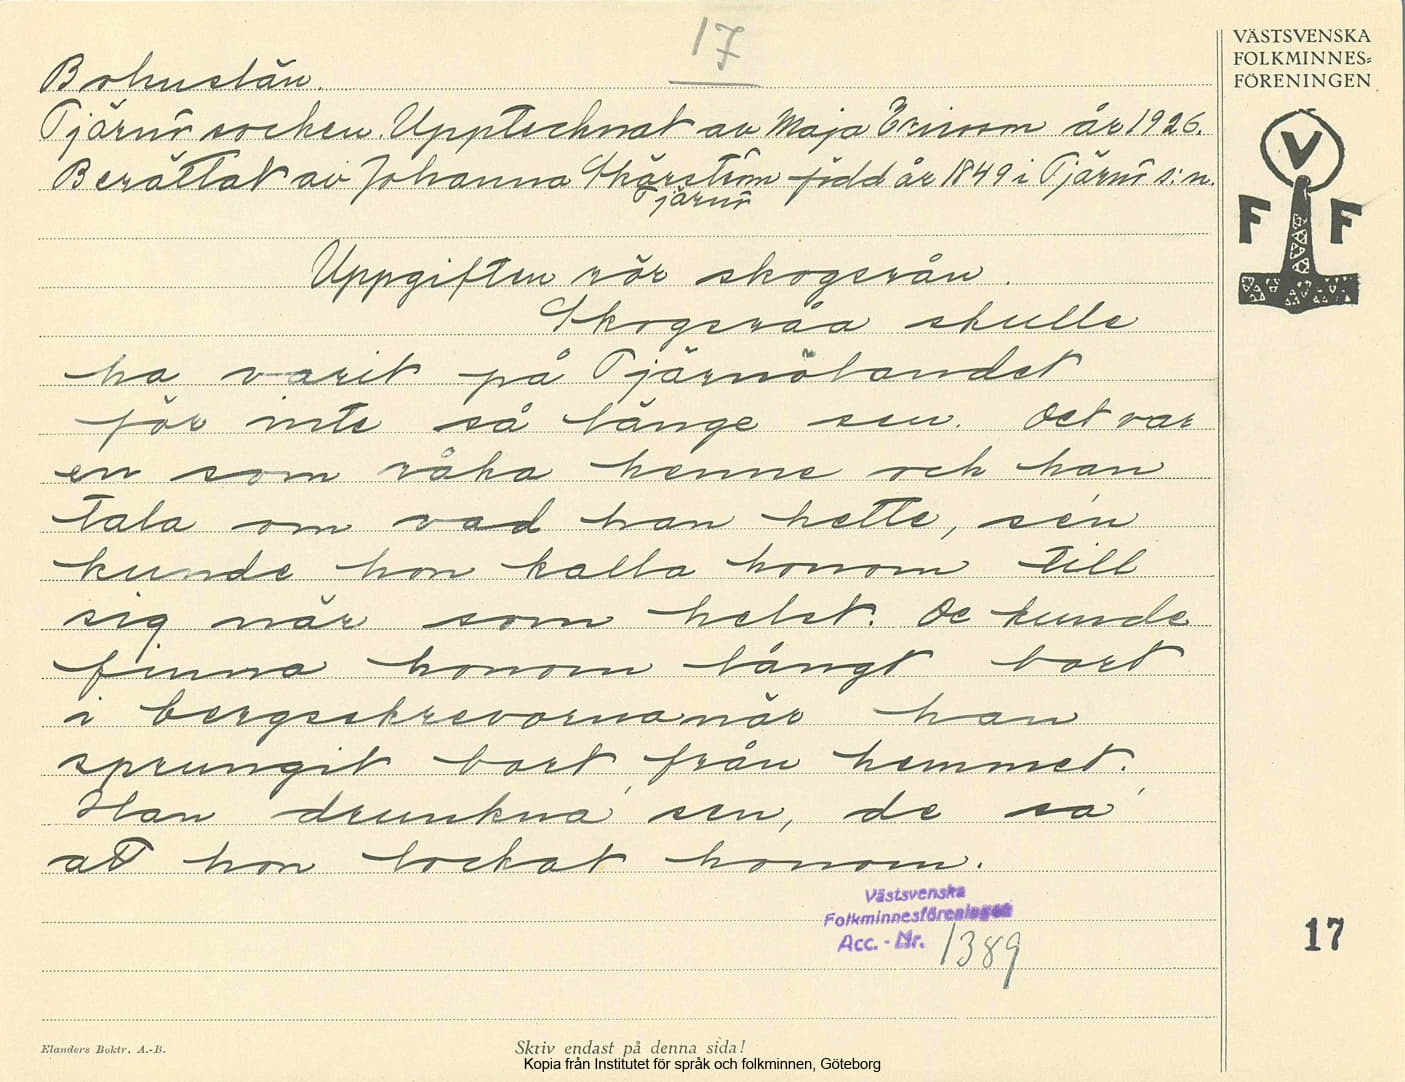 17
VÄSTSVENSKA
FOLKMINNES=
FÖRENINGEN
V
F F
Bohuslän.
Tjärnö socken. Upptecknat av Maja Ericson år 1926.
Berättat av Johanna Skärström född år 1849 i Tjärnö s:n.
Tjärnö
Uppgiften rör skogsrån.
Skogsråa skulle
ha varit på Tjärnölandet
för inte så länge sen. Det var
en som råka henne och han
tala om vad han hette, sén
kunde hon kalla honom till
sig när som helst. De kunde
finna honom långt bort
i bergsskrevorna när han
sprungit bort från hemmet.
Han drunkna' sen, de sa'
att hon lockat honom.
Västsvenska
Folkminnesföreningen
Acc. - Nr. 1389
17
Elanders Boktr. A.-B.
Skriv endast på denna sida!
Kopia från Institutet för språk och folkminnen, Göteborg